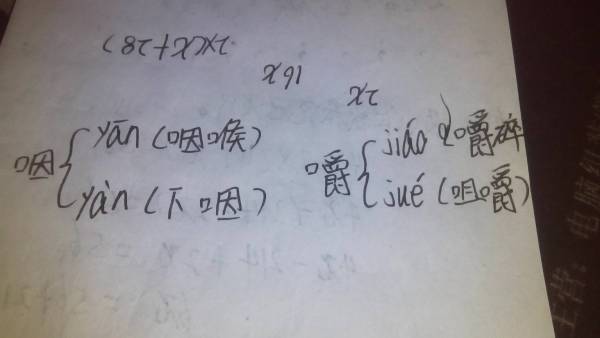 2x(x+28)
16x
2x
咽 yān(咽喉)
yàn(下咽)
嚼 jiáo(嚼碎
jué(咀嚼)